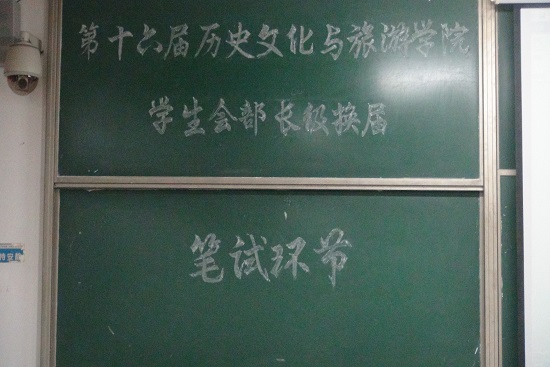 第十六届历史文化与旅游学院
学生会部长级换届
笔试环节